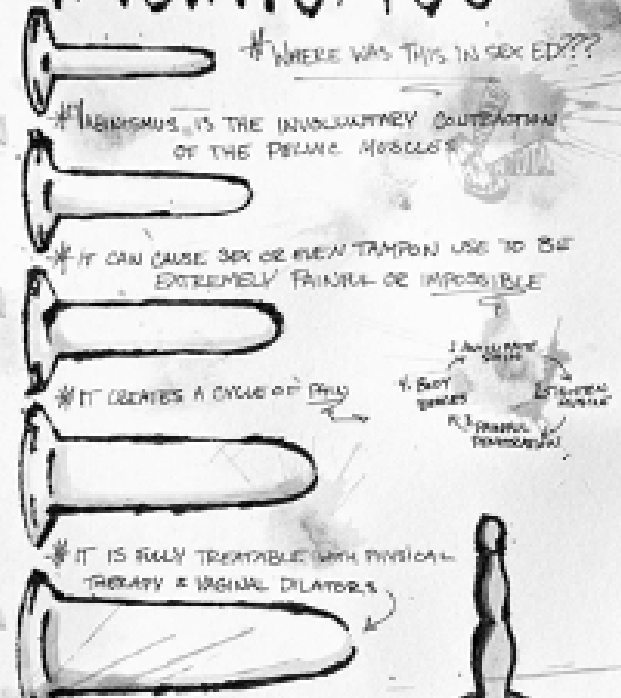 #WHERE WAS THIS IN SEX ED???
#VAGINISMUS IS THE INVOLUNTARY CONTRACTION
OF THE PELVIC MUSCLES
#IT CAN CAUSE SEX OR EVEN TAMPON USE TO BE
EXTREMELY PAINFUL OR IMPOSSIBLE
#IT CREATES A CYCLE OF PAIN
1. ANTICIPATE
4. BODY
3. PAINFUL
PENETRATION
#IT IS FULLY TREATABLE WITH PHYSICAL
THERAPY & VAGINAL DILATORS